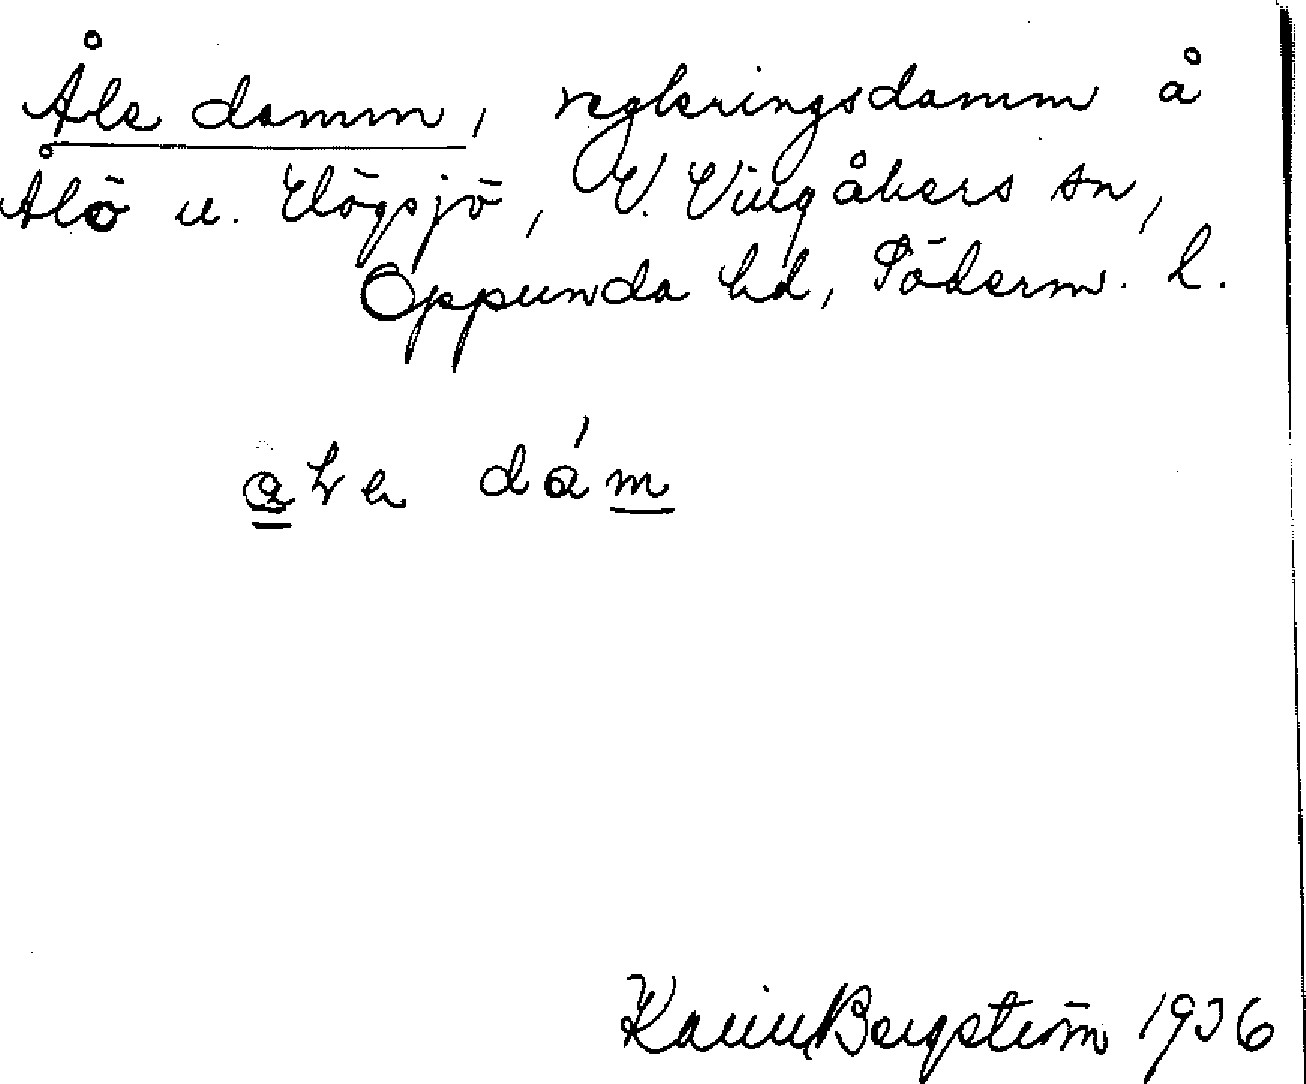 Åle damm, regleringsdamm å
Ålö u. Högsjö, V. Vingåkers sn,
Oppunda hd, Söderm. l.
dám
Karin Bergström 1936